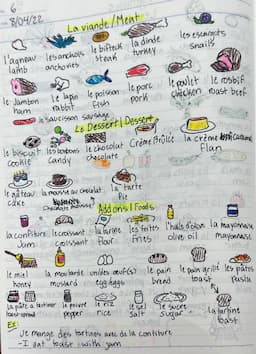 6
8/04/22
La viande/Meat
l'agneau les anchois le bifteck la dinde les escargots
lamb anchovies steak turkey snails
le jambon le lapin le poisson le porc le poulet le rosbif
ham rabbit fish pork chicken roast beef
le saucisson sausage
Le Dessert/Dessert
le biscuit les bonbons le chocolat Crème Brûlée la crème
cookie candy chocolate Flan
le gâteau la mousse au chocolat la tarte
cake chocolate mousse Pie
Addons/Foods
la confiture le croissant la farine les frites l'huile d'olive la mayonnaise
Jam croissant flour fries olive oil mayonnaise
le miel la moutarde un/des œuf(s) le pain le pain grillé les pâtes
honey mustard egg/eggs bread toast pasta
la pâte à tartiner le poivre le riz le sel le sucre la tartine
pepper rice salt sugar toast
Ex:
Je mange des tartines avec de la confiture
- I eat toast with jam